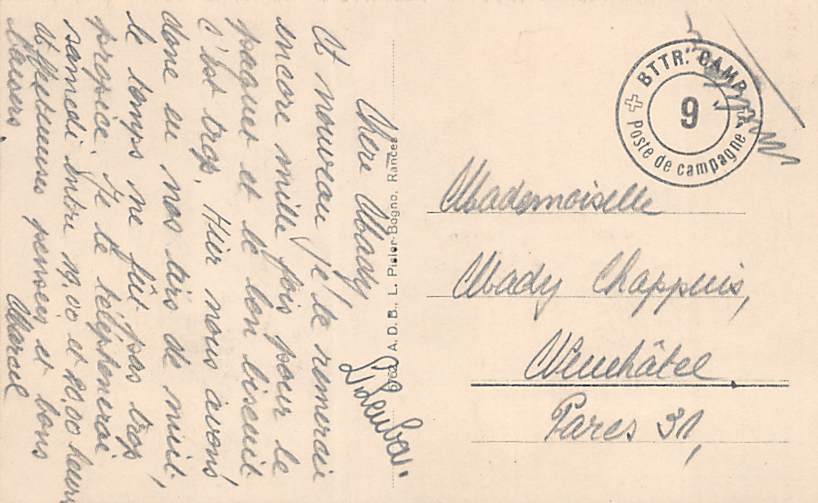 Chère Mady
Et nouveau je te remercie
encore mille fois pour le
paquet et le bon biscuit
c'est trop. Hier nous avons
donc eu nos tirs de nuit,
le temps ne fût pas trop
propice. Je te téléphonerai
samedi entre 19.00 et 20.00 heures
Affectueuses pensées et bons
baisers. Marcel
A.D.B., L. Bogno, Rances
BTTR. CAMP.
9
Poste de campagne
Mademoiselle
Mady Chappuis,
Neuchâtel
Parcs 31,